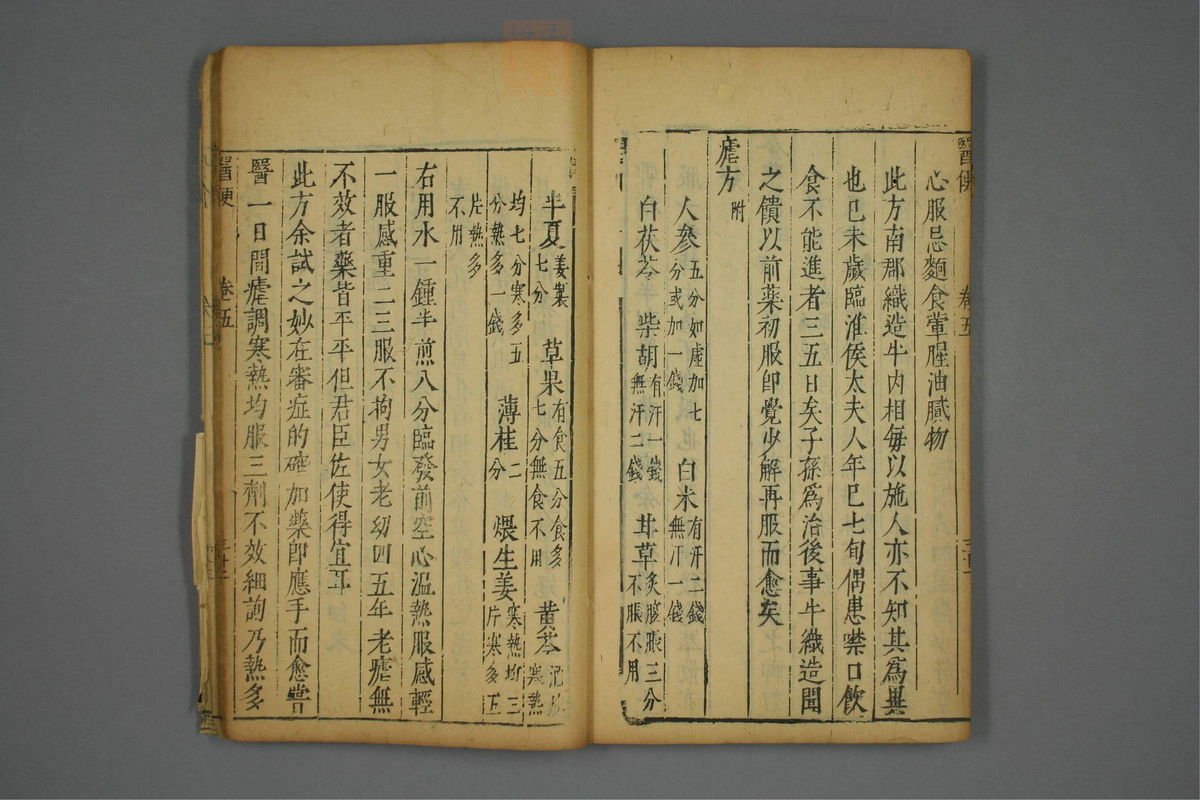 心服忌麵食葷腥油膩物
此方南郡織造牛内相每以施人亦不知其爲異
也己未歲臨淮侯太夫人年已七旬偶患噤口飲
食不能進者三五日矣子孫爲治後事牛織造聞
之饋以前藥初服即覺少解再服而愈矣
瘧方附
人參五分如虛加七分或加一錢 白术有汗二錢無汗一錢
白茯苓 柴胡有汗一錢無汗二錢 甘草炙腹脹三分不脹不用
半夏姜製七分 草果有食五分食多七分無食不用 黃芩
寒熱均七分寒多五分熱多一錢 薄桂二分 煨生姜寒熱均三片寒多五
片熱多不用
右用水一鍾半煎八分臨發前空心溫熱服感輕
一服感重二三服不拘男女老幼四五年老瘧無
不效者藥皆平平但君臣佐使得宜耳
此方余試之妙在審症的確加藥即應手而愈嘗
醫一日間瘧調寒熱均服三劑不效細詢乃熱多
醫便
卷五